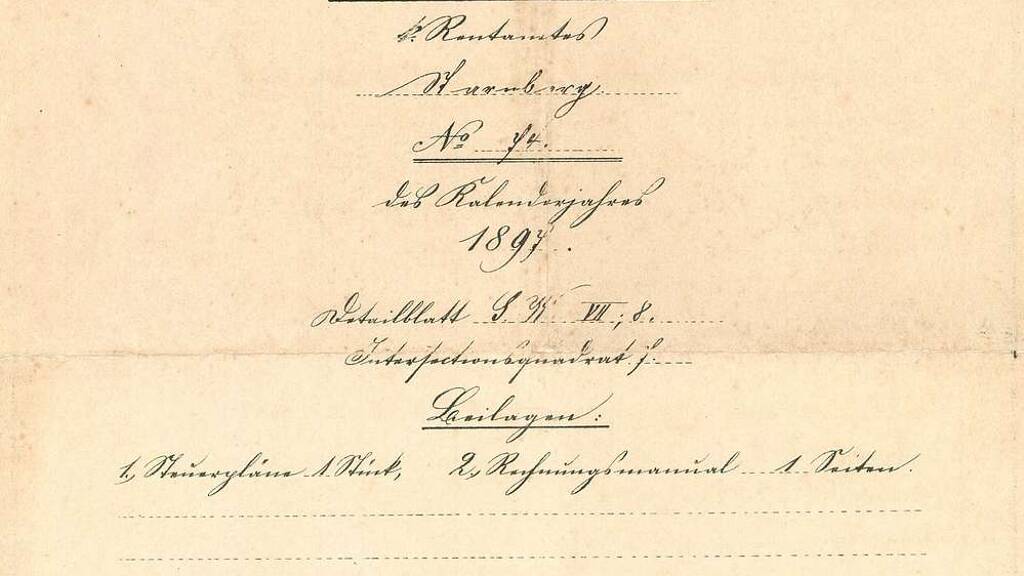 k. Rentamtes
Starnberg.
No 74.
des Kalenderjahres
1897.
Detailblatt S W VII; 8.
Intersectionsquadrat f.
Beilagen:
1, Steuerpläne 1 Stück, 2, Rechnungsmanual 1 Seiten.